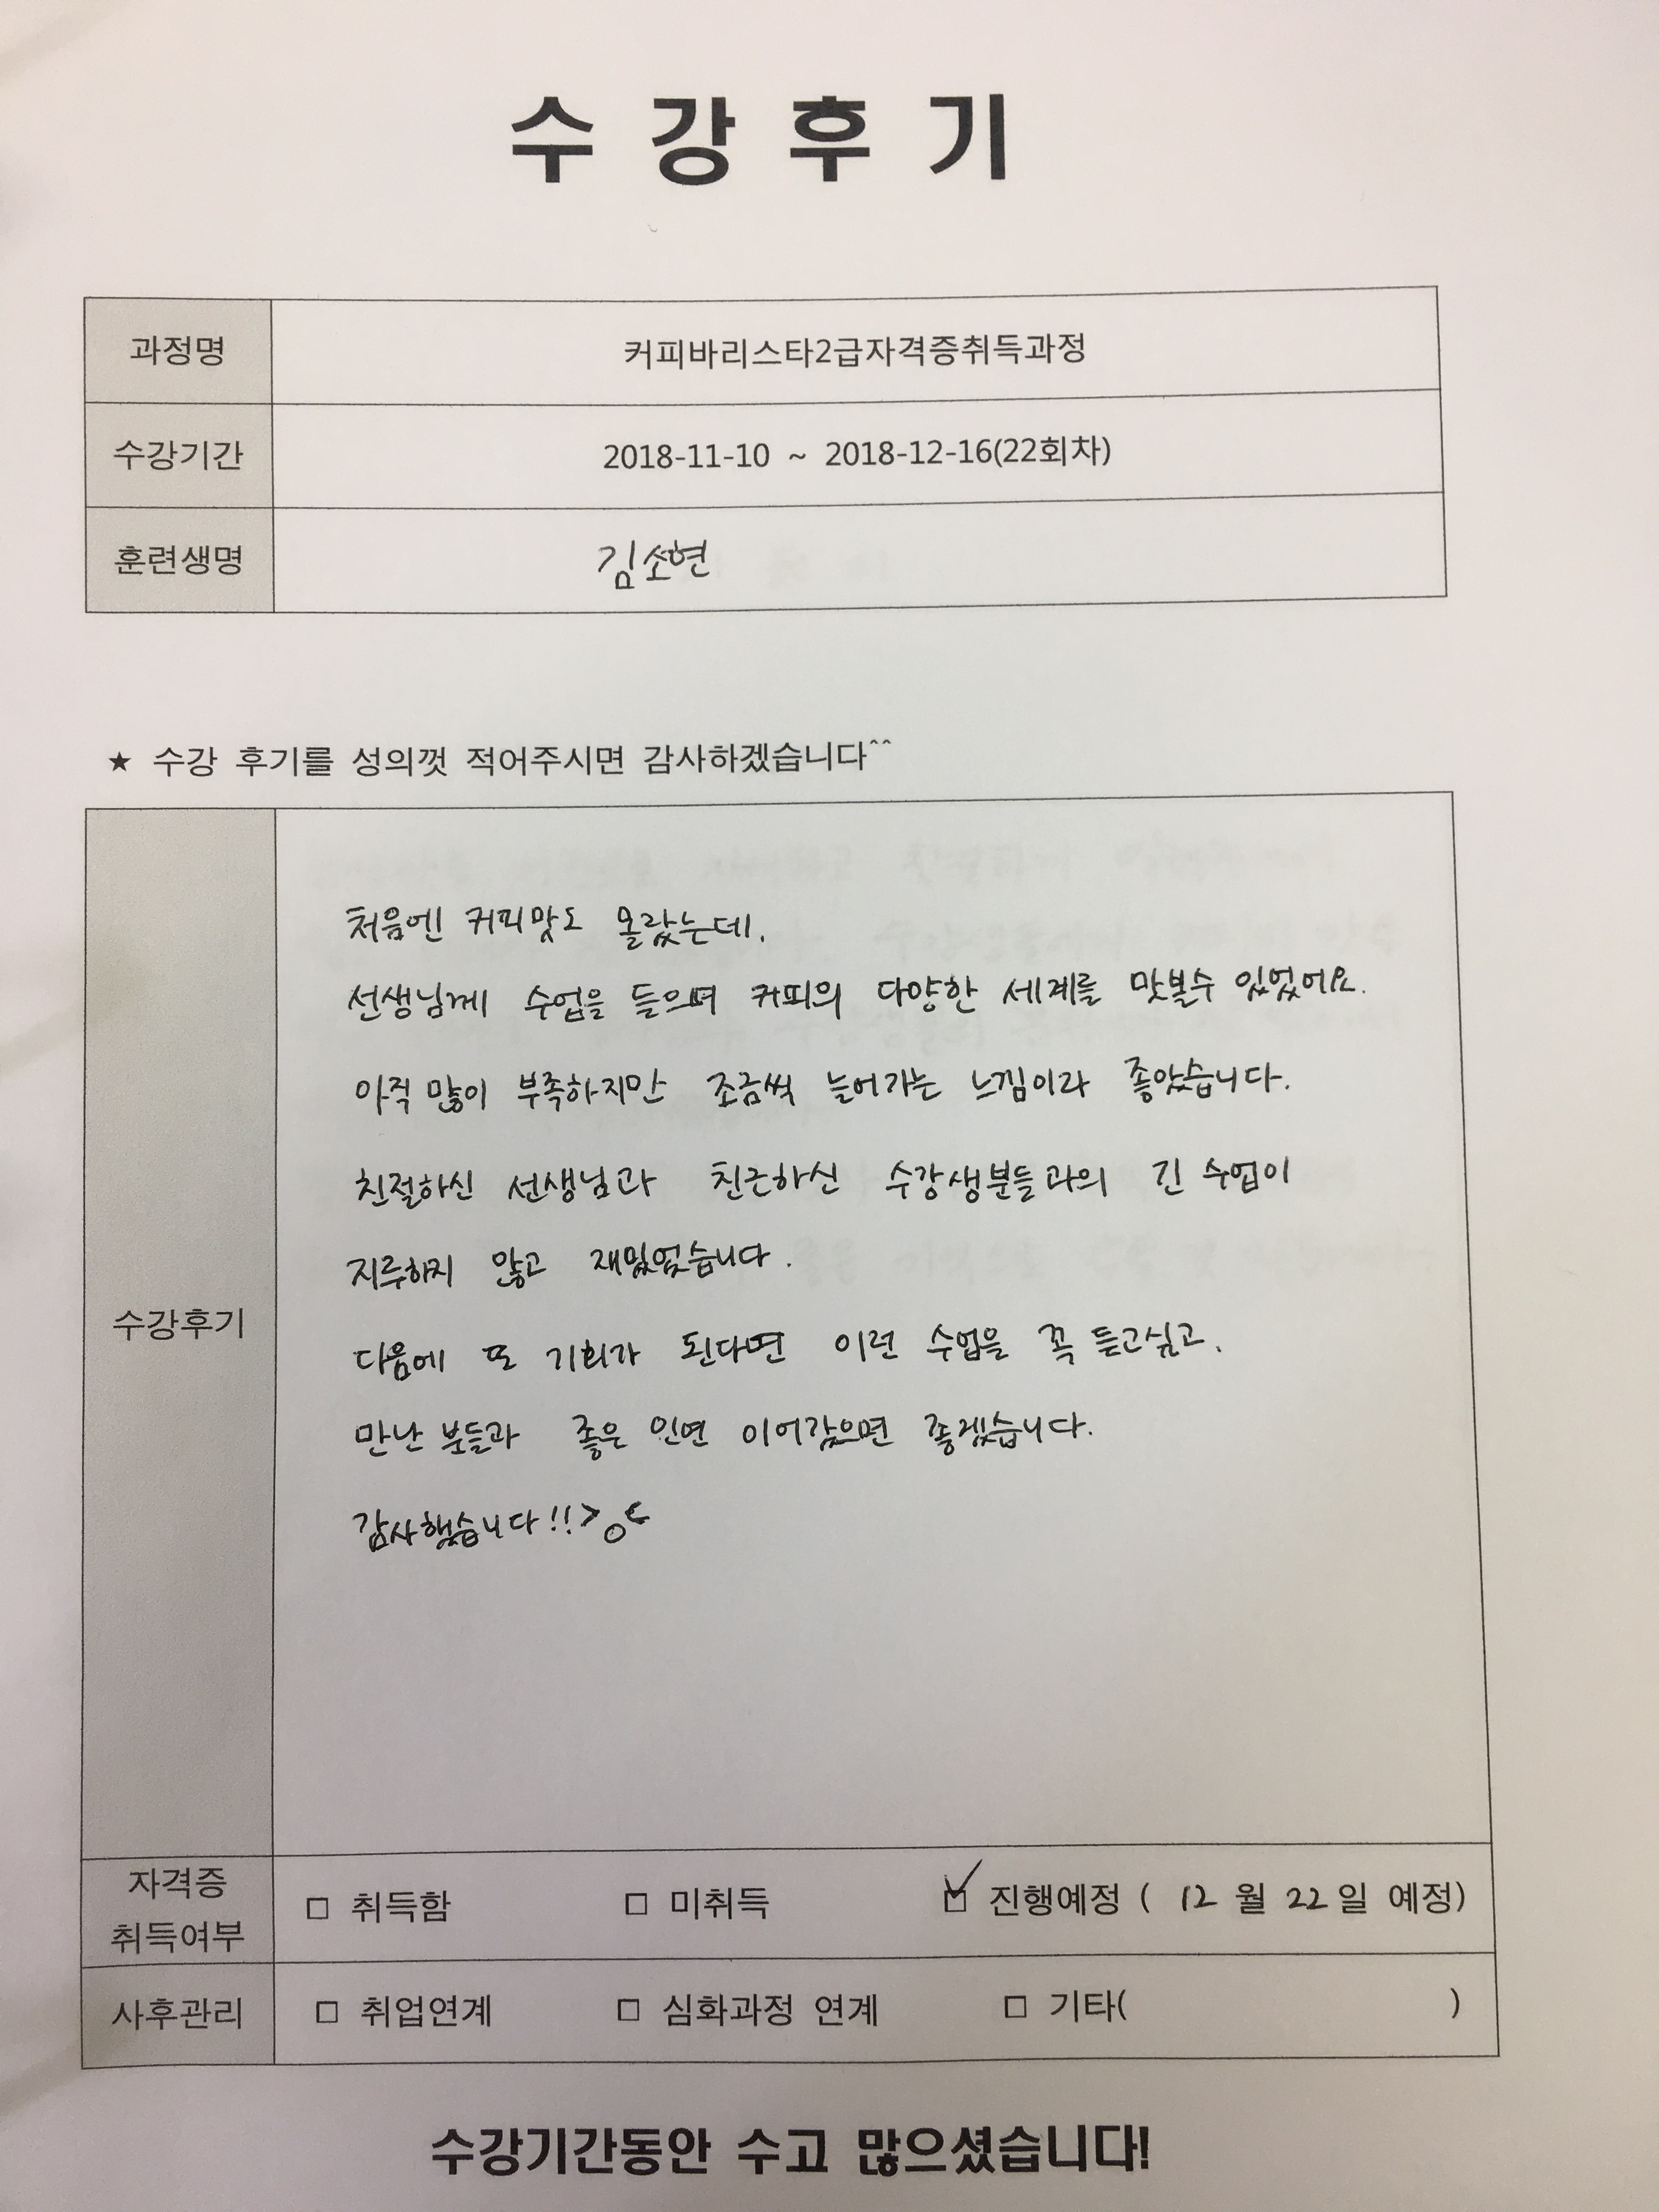 수강후기
과정명 커피바리스타2급자격증취득과정
수강기간 2018-11-10 ~ 2018-12-16(22회차)
훈련생명 김소현
★ 수강 후기를 성의껏 적어주시면 감사하겠습니다^^
처음엔 커피맛도 몰랐는데,
선생님께 수업을 들으며 커피의 다양한 세계를 맛볼수 있었어요.
아직 많이 부족하지만 조금씩 늘어가는 느낌이라 좋았습니다.
친절하신 선생님과 친근하신 수강생분들과의 긴 수업이
지루하지 않고 재밌었습니다.
다음에 또 기회가 된다면 이런 수업을 꼭 듣고싶고,
만난 분들과 좋은 인연 이어갔으면 좋겠습니다.
감사했습니다!!>o<
수강후기
자격증
취득여부
□ 취득함 □ 미취득 ☑ 진행예정 ( 12 월 22 일 예정)
사후관리 □ 취업연계 □ 심화과정 연계 □ 기타( )
수강기간동안 수고 많으셨습니다!